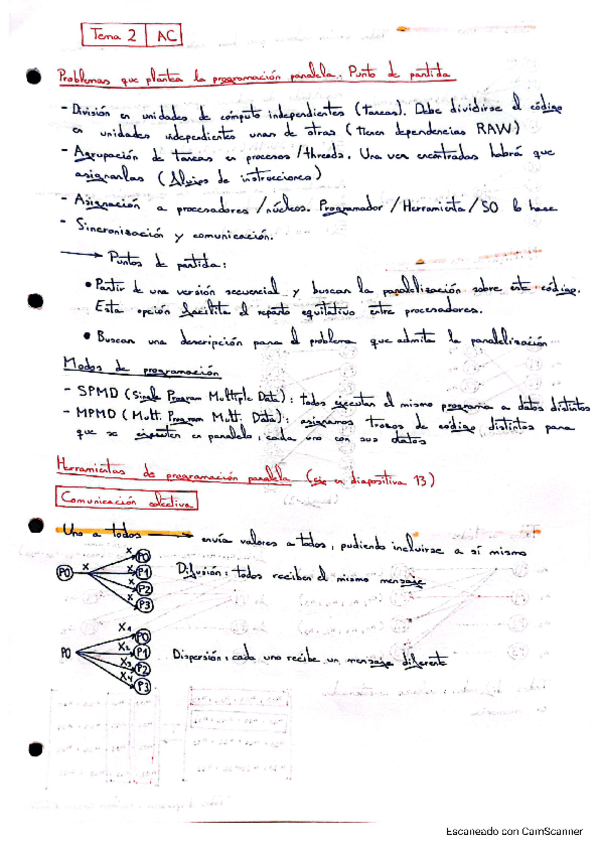 Tema 2 | AC
Problemas que plantea la programación paralela. Punto de partida
- División en unidades de cómputo independientes (tareas). Debe dividirse el código
en unidades independientes unas de otras (tienen dependencias RAW)
- Agrupación de tareas en procesos/threads. Una vez encontradas habrá que
asignarlas (flujos de instrucciones)
- Asignación a procesadores/núcleos. Programador/Herramienta/SO lo hace
- Sincronización y comunicación.
→ Puntos de partida:
• Partir de una versión secuencial y buscan la paralelización sobre este código.
Esta opción facilita el reparto equitativo entre procesadores.
• Buscan una descripción para el problema que admita la paralelización
Modos de programación
- SPMD (Single Program Multiple Data): todos ejecutan el mismo programa a datos distintos
- MPMD (Mult. Program Mult. Data): asignamos trozos de código distintos para
que se ejecuten en paralelo, cada uno con sus datos
Herramientas de programación paralela (eje en diapositiva 13)
Comunicación colectiva
Uno a todos → envía valores a todos, pudiendo incluirse a sí mismo
P0 x x P0
x P1
x P2
x P3
Difusión: todos reciben el mismo mensaje
P0 X1 P0
X2 P1
X3 P2
X4 P3
Dispersión: cada uno recibe un mensaje diferente
Escaneado con CamScanner